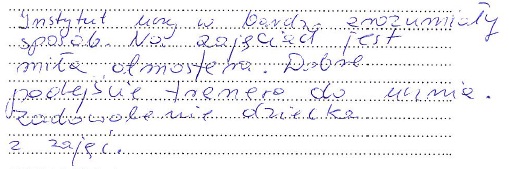 Instytut uczy w bardzo zrozumiały
sposób. Na zajęciach jest
miła atmosfera. Dobre
podejście trenera do ucznia.
Zadowolenie dziecka
z zajęć.